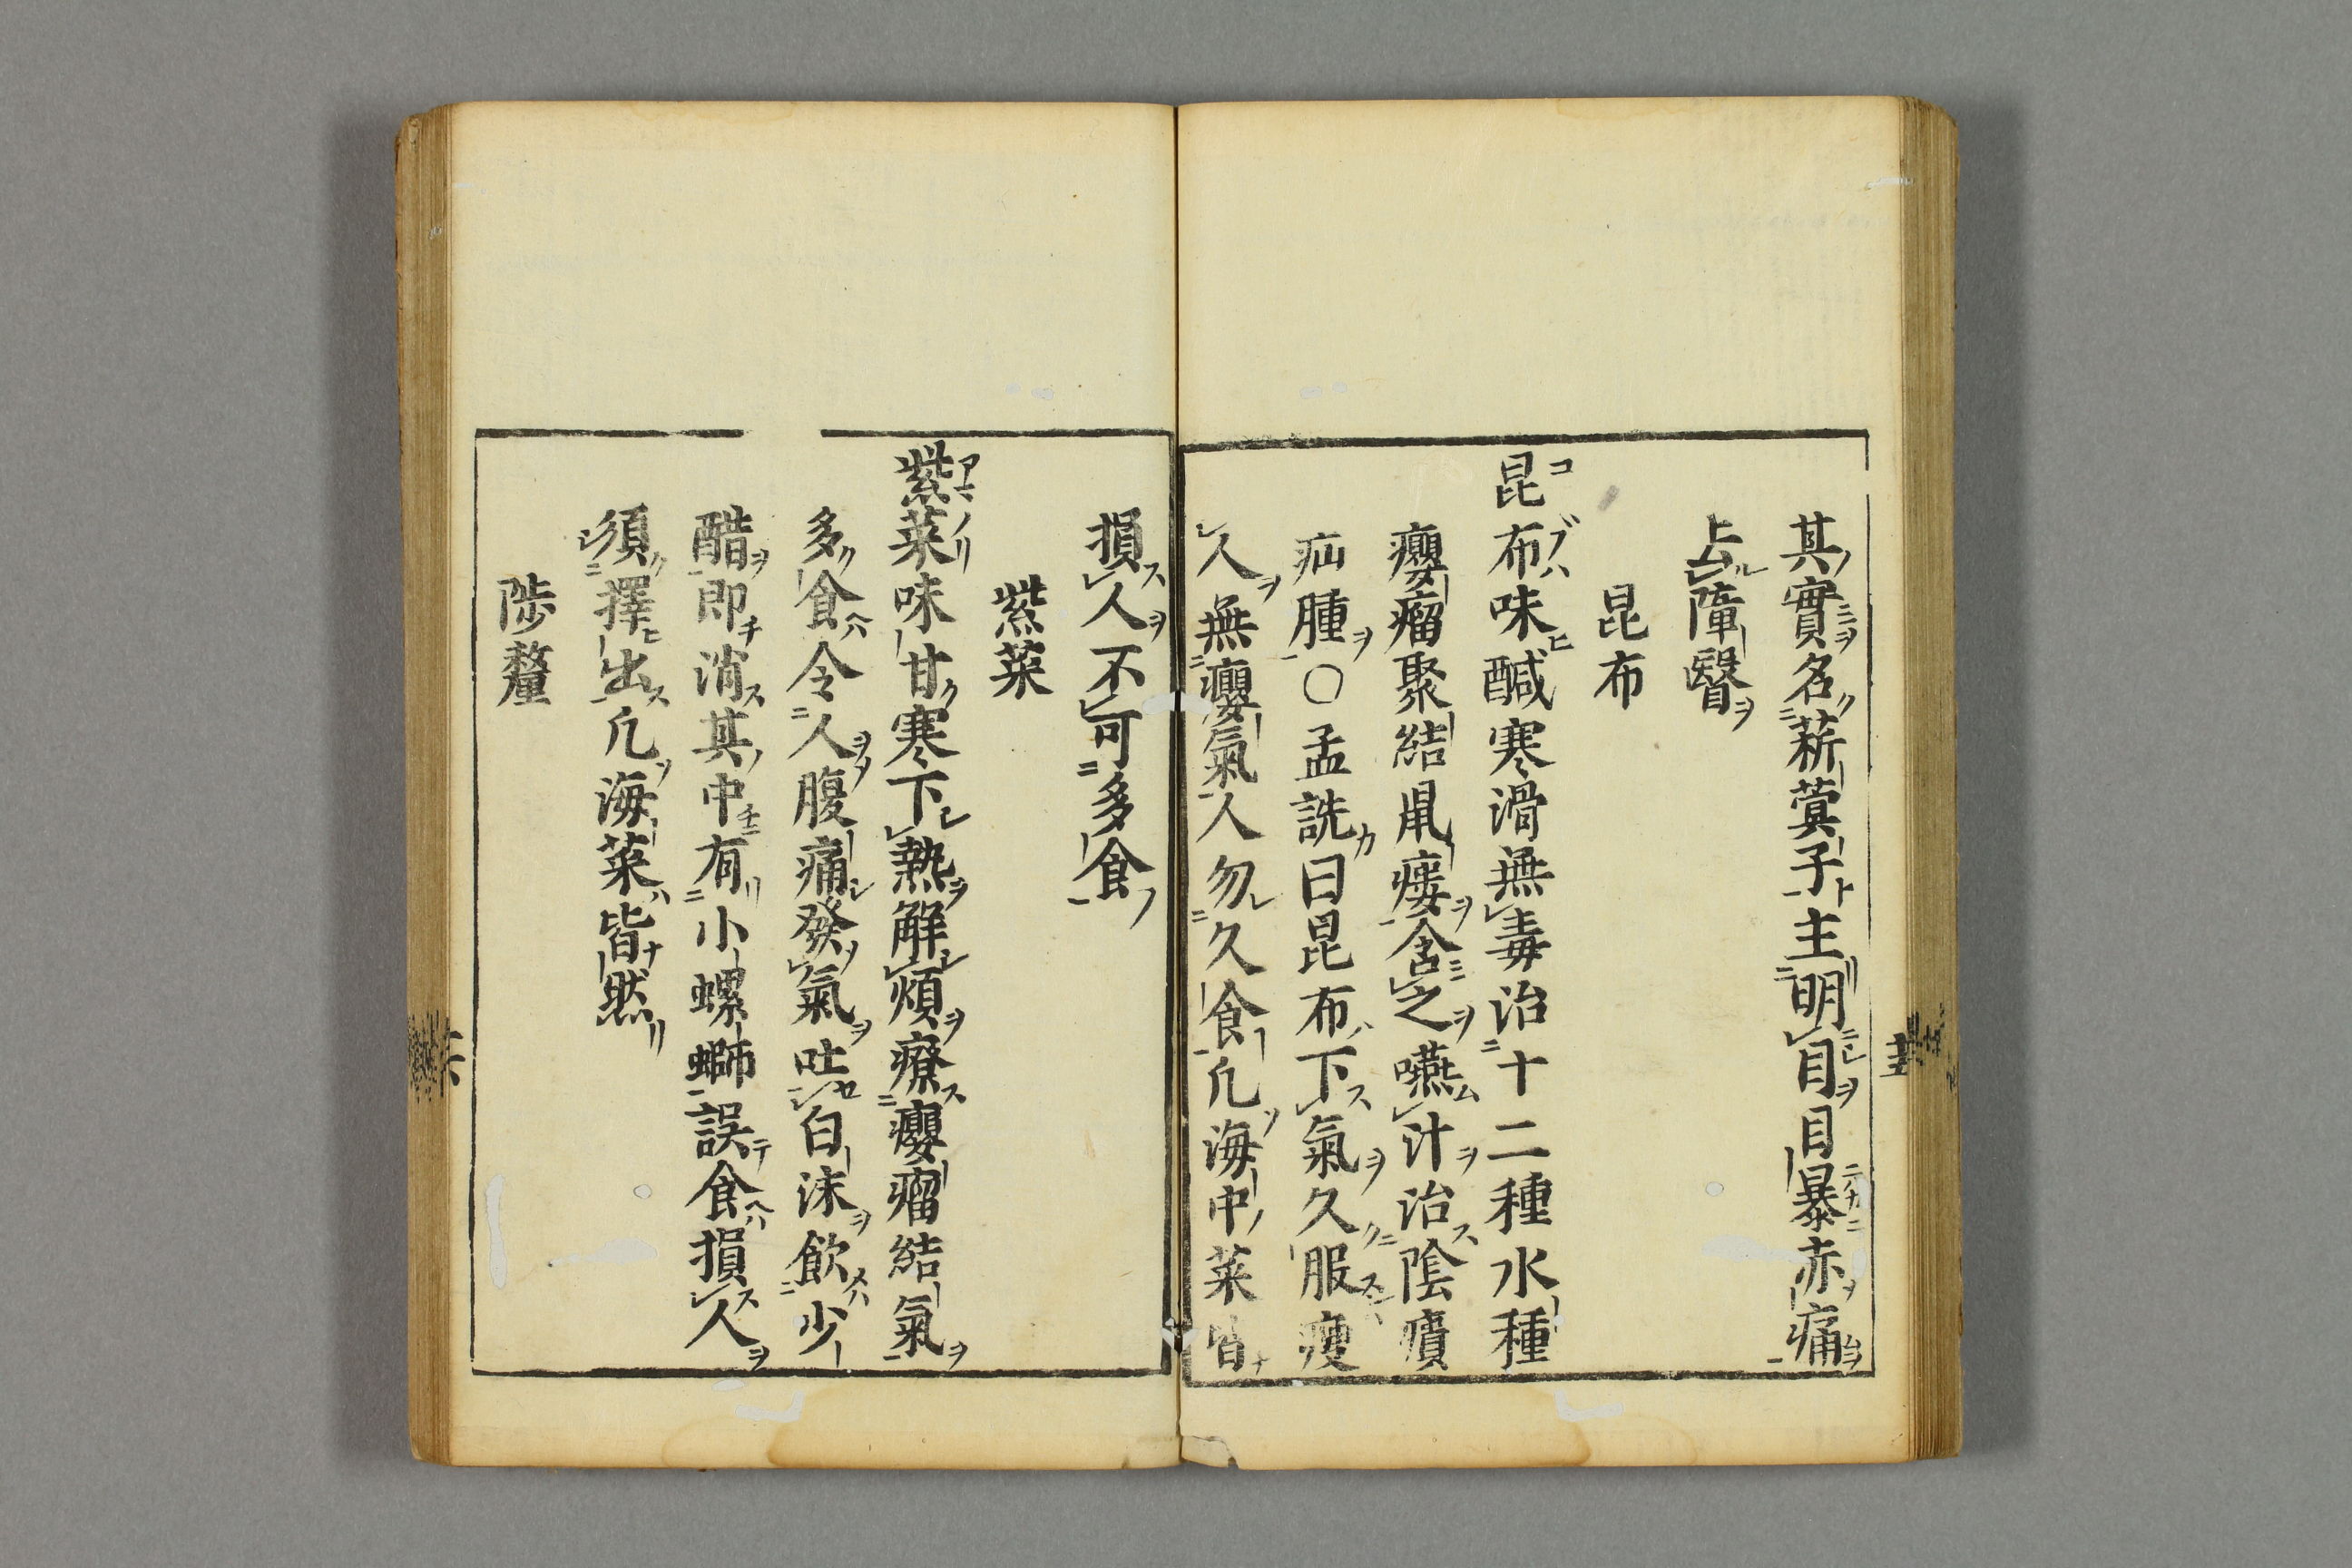 其實名薪蓂子主明目目暴赤痛
去障瞖
昆布
昆布味醎寒滑無毒治十二種水種
癭瘤聚結鼡瘻含之嚥汁治陰㿉
疝腫○孟詵曰昆布下氣久服瘦
人無癭氣人勿久食凢海中菜皆
損人不可多食
紫菜
紫菜味甘寒下熱解煩療癭瘤結氣
多食令人腹痛發氣吐白沫飲少
醋即消其中有小螺螄誤食損人
須擇出凢海菜皆然
陟釐